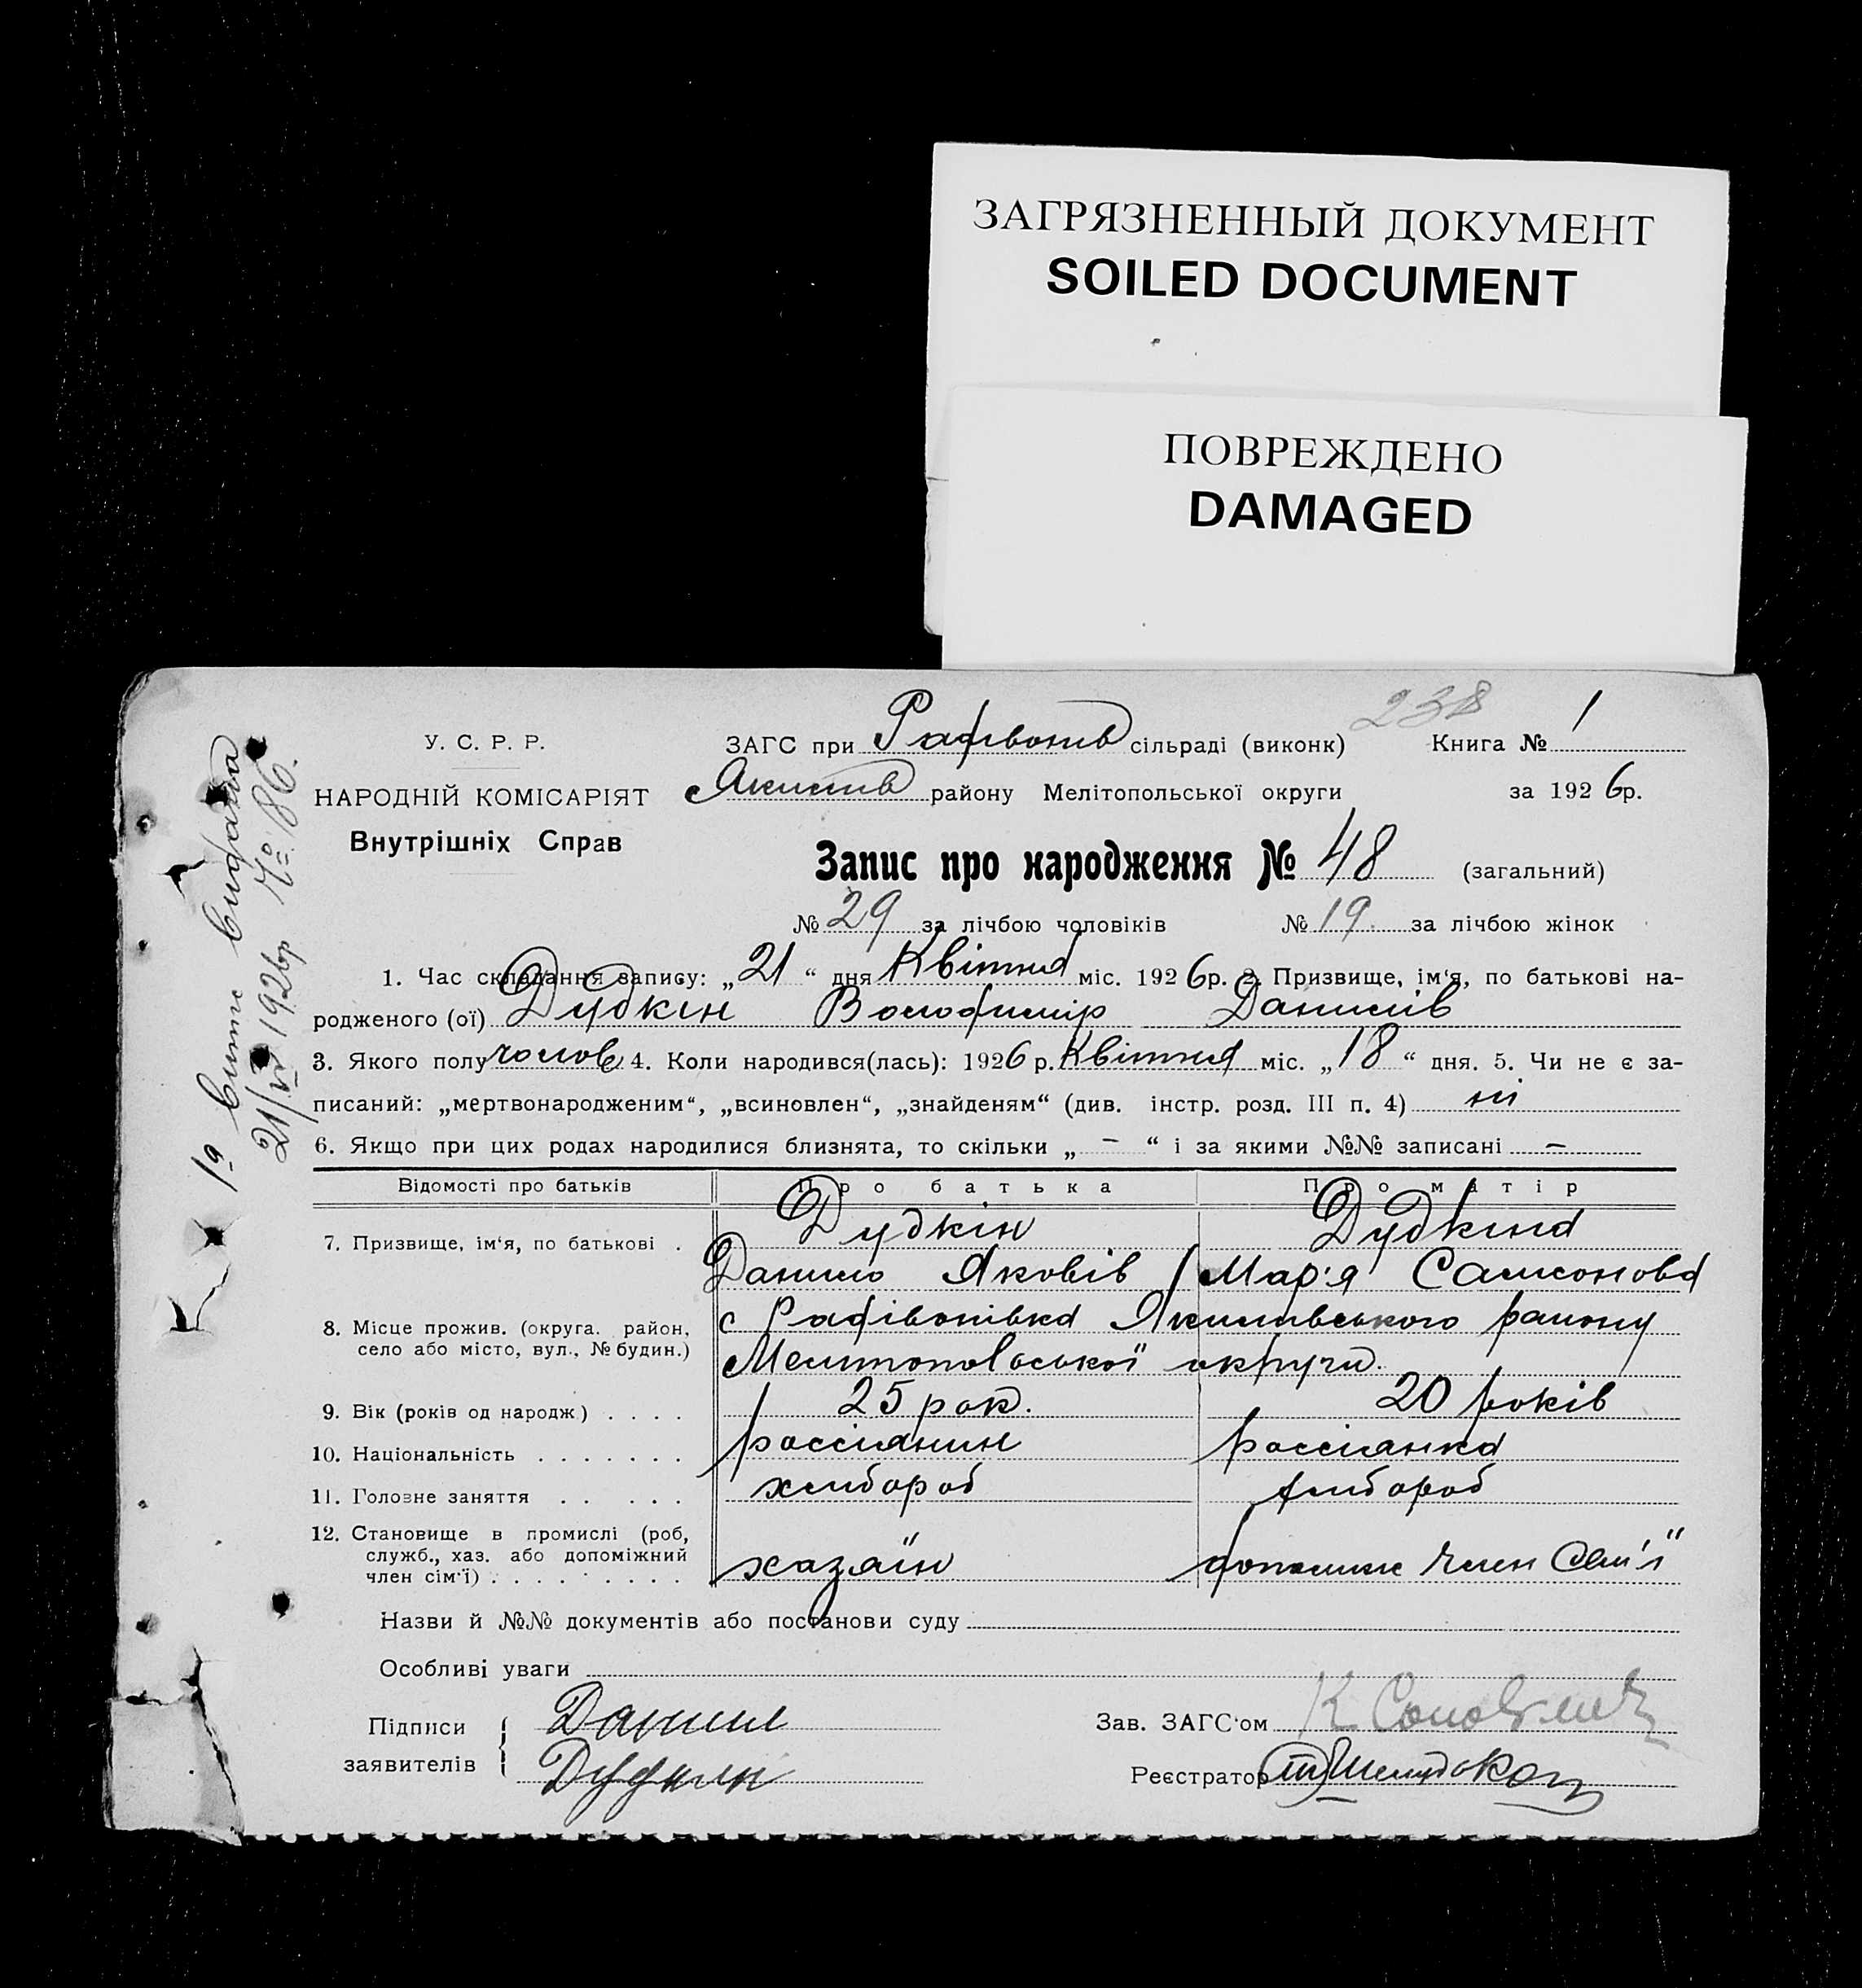 ЗАГРЯЗНЕННЫЙ ДОКУМЕНТ
SOILED DOCUMENT
ПОВРЕЖДЕНО
DAMAGED
238
У. С. Р. Р.
НАРОДНІЙ КОМІСАРІЯТ
Внутрішніх Справ
ЗАГС при сільраді (виконк) Книга № 1
Якимів району Мелітопольської округи за 1926р.
Запис про народження № 48 (загальний)
№ 29 за лічбою чоловіків № 19 за лічбою жінок
1. Час складання запису: „21“ дня Квітня міс. 1926р. 2. Призвище, ім‘я, по батькові на-
родженого (ої) Дудкін Володимір Данилів
3. Якого полу чолов 4. Коли народився(лась): 1926 р. Квітня міс. „18“ дня. 5. Чи не є за-
писаний: „мертвонародженим“, „всиновлен“, „знайденям“ (див. інстр. розд. III п. 4) ні
6. Якщо при цих родах народилися близнята, то скільки „ – “ і за якими №№ записані –
Відомості про батьків Про батька Про матір
7. Призвище, ім‘я, по батькові . Дудкін Дудкіна
Данило Яковів Мар'я Самсонова
8. Місце прожив. (округа. район, село або місто, вул., № будин.) с Радівонівка Якимівського району
Мелитопольської округи.
9. Вік (років од народж) . . . . 25 рок. 20 років
10. Національність . . . . . . . россиянин россіянка
11. Головне заняття . . . . . хлибороб хлибороб
12. Становище в промислі (роб, служб., хаз. або допоміжний член сім‘ї) . . . . . . . . . хазяїн допомиж член Сем'ї
Назви й №№ документів або постанови суду
Особливі уваги
Підписи заявителів Данил
Дудкин
Зав. ЗАГС‘ом
Реєстратор
1а Витис видана
21/IV 1926р № 186.